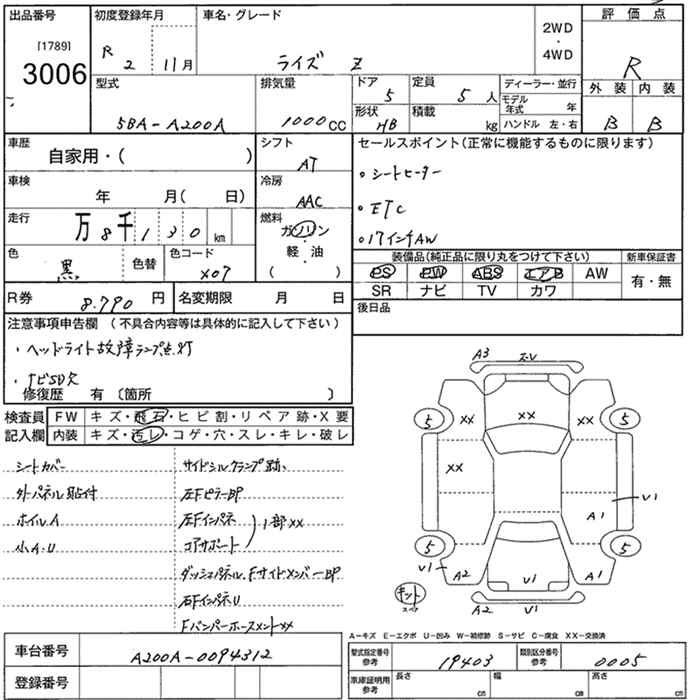 出品番号 初度登録年月 車名・グレード 評価点
[1789]
3006
R 2 11月 ライズ Z 2WD・4WD R
型式 排気量 ドア 定員 ディーラー・並行 外装 内装
5BA-A200A 1000CC 5 5人 モデル年式 年 B B
形状 HB 積載 kg ハンドル 左・右
車歴 自家用・( ) シフト AT
セールスポイント(正常に機能するものに限ります)
車検 年 月( 日) 冷房 AAC
・シートヒーター
・ETC
・17インチAW
走行 万8千130km 燃料 ガソリン 軽・油 ( )
色 黒 色替 色コード X07
装備品(純正品に限り丸をつけて下さい) 新車保証書
PS PW ABS エアB AW 有・無
SR ナビ TV カワ
R券 8.790円 名変期限 月 日
後日品
注意事項申告欄 (不具合内容等は具体的に記入して下さい)
・ヘッドライト故障ランプ点灯
・ナビSD欠
修復歴 有 〔箇所 〕
検査員記入欄 FW キズ・飛石・ヒビ割・リペア跡・X要
内装 キズ・汚レ・コゲ・穴・スレ・キレ・破レ
シートカバー サイドシルクランプ跡
外パネル貼付 左FピラーBP
ホイルA 左Fインパネ
小A・U コアサポート 1部XX
ダッシュパネル、FサイドメンバーBP
右FインパネU
FバンパーホースメントXX
A3
5 XX XX 5
XX
V1
A1
5 5
V1 A2 V1 A1
キット
A2 V1
A-キズ E-エクボ U-凹み W-補修跡 S-サビ C-腐食 XX-交換済
車台番号 A200A-0094312
型式指定番号 参考 19403 類別区分番号 参考 0005
登録番号
車庫証明用 参考 長さ cm 幅 cm 高さ cm